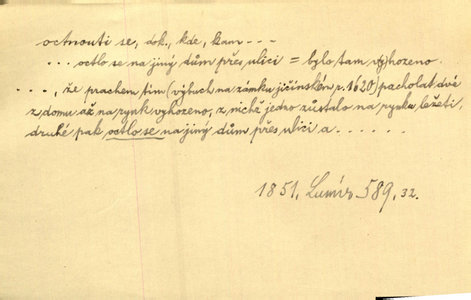 octnouti se, dok., kde, kam ---
... octlo se na jiný dům přes ulici = bylo tam vyhozeno.
...., že prachem tím (výbuch na zámku jičínském r. 1620) pacholat dvé
z domu až na rynk vyhozeno, z nichž jedno zůstalo na rynku ležeti,
druhé pak octlo se na jiný dům přes ulici a ......
1851, Lumír 589, 32.